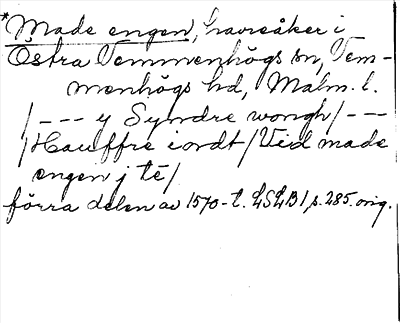 *Made engen, havreåker i
Östra Vemmenhögs sn, Vem-
menhögs hd, Malm. l.
/--- y Syndre wongh/---
/Hauffre iordt/Vid made
engen j té/
förra delen av 1570-t. LSLB1, s. 285. orig.